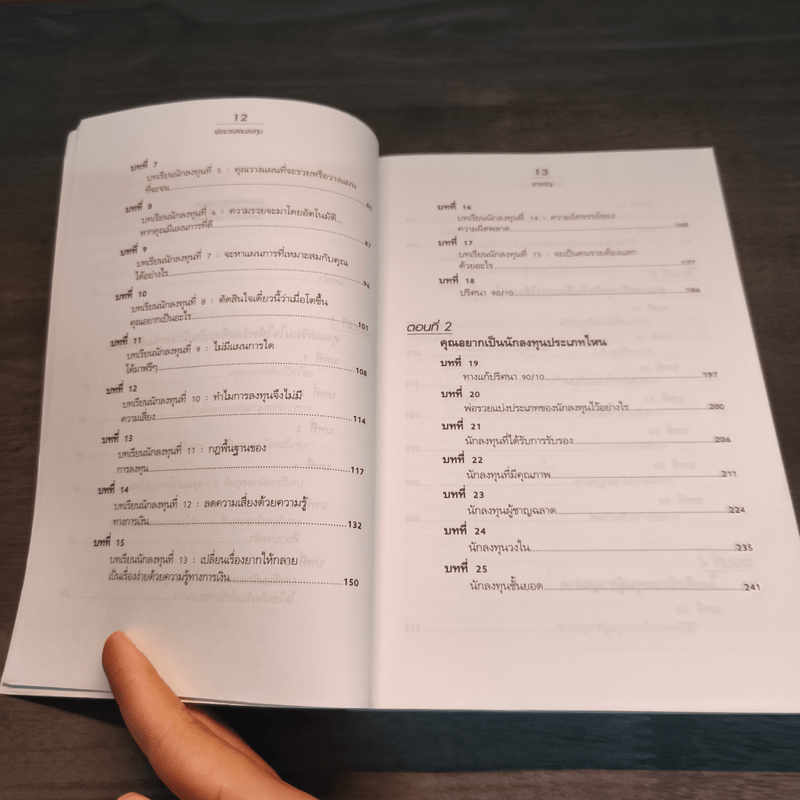 12
พ่อรวยสอนลงทุน
บทที่ 7
บทเรียนนักลงทุนที่ 5 : คุณวางแผนที่จะรวยหรือวางแผน
ที่จะจน
บทที่ 8
บทเรียนนักลงทุนที่ 6 : ความรวยจะมาโดยอัตโนมัติ...
หากคุณมีแผนการที่ดี 87
บทที่ 9
บทเรียนนักลงทุนที่ 7 : จะหาแผนการที่เหมาะสมกับคุณ
ได้อย่างไร 96
บทที่ 10
บทเรียนนักลงทุนที่ 8 : ตัดสินใจเดี๋ยวนี้ว่าเมื่อโตขึ้น
คุณอยากเป็นอะไร 101
บทที่ 11
บทเรียนนักลงทุนที่ 9 : ไม่มีแผนการใด
ได้มาฟรีๆ 108
บทที่ 12
บทเรียนนักลงทุนที่ 10 : ทำไมการลงทุนจึงไม่มี
ความเสี่ยง 114
บทที่ 13
บทเรียนนักลงทุนที่ 11 : กฎพื้นฐานของ
การลงทุน 117
บทที่ 14
บทเรียนนักลงทุนที่ 12 : ลดความเสี่ยงด้วยความรู้
ทางการเงิน 132
บทที่ 15
บทเรียนนักลงทุนที่ 13 : เปลี่ยนเรื่องยากให้กลาย
เป็นเรื่องง่ายด้วยความรู้ทางการเงิน 150
13
สารบัญ
บทที่ 16
บทเรียนนักลงทุนที่ 14 : ความอัศจรรย์ของ
ความผิดพลาด 168
บทที่ 17
บทเรียนนักลงทุนที่ 15 : จะเป็นคนรวยต้องแลก
ด้วยอะไร 177
บทที่ 18
ปริศนา 90/10 186
ตอนที่ 2
คุณอยากเป็นนักลงทุนประเภทไหน
บทที่ 19
ทางแก้ปริศนา 90/10 197
บทที่ 20
พ่อรวยแบ่งประเภทของนักลงทุนไว้อย่างไร 200
บทที่ 21
นักลงทุนที่ได้รับการรับรอง 206
บทที่ 22
นักลงทุนที่มีคุณภาพ 211
บทที่ 23
นักลงทุนผู้ชาญฉลาด 224
บทที่ 24
นักลงทุนวงใน 235
บทที่ 25
นักลงทุนชั้นยอด 241